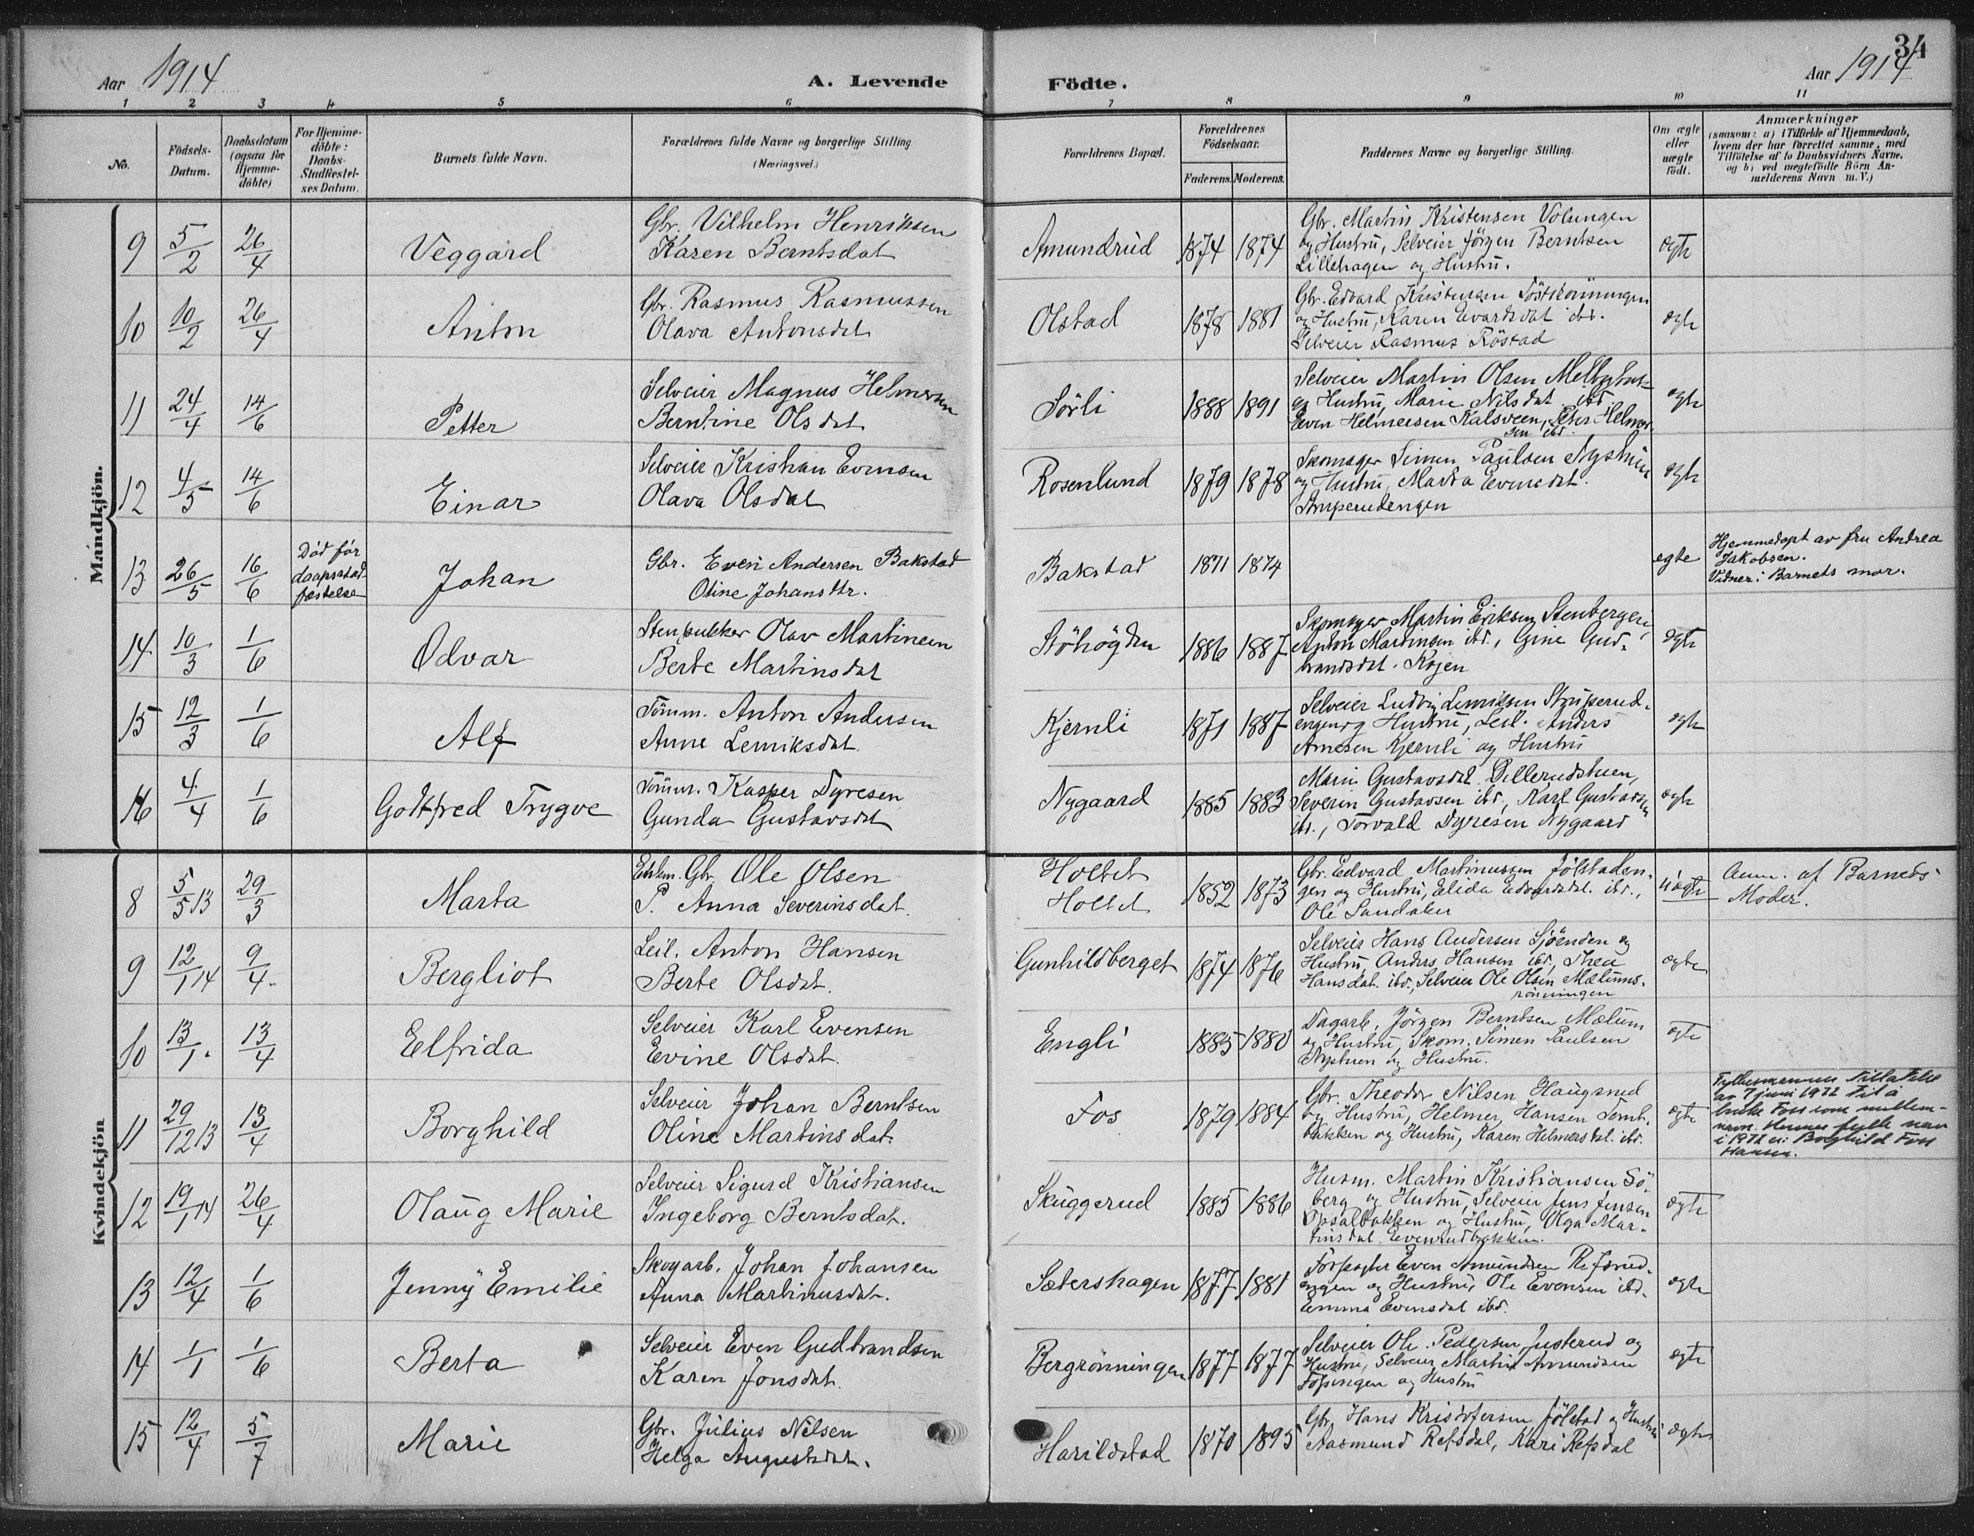 34
Aar 1914
A. Levende
Födte.
Aar 1914
1 2 3 4 5 6 7 8 9 10 11
No.
Födsels-
Datum.
Daabsdatum
(ogsaa for
Hjemme-
döbte)
For Hjemme-
döbte:
Daabs-
Stadfæstel-
ses Datum.
Barnets fulde Navn.
Forældrenes fulde Navne og borgerlige Stilling
(Næringsvei.)
Forældrenes Bopæl.
Forældrenes
Födselsaar.
Faderens. Moderens.
Faddernes Navne og borgerlige Stilling.
Om ægte
eller
uægte
födt.
Anmærkninger
(saasom: a) i Tilfælde af Hjemmedaab,
hvem der har forrettet samme, med
Tilföielse af to Daabsvidners Navne,
og b) ved uægtefödte Börn An-
melderens Navn m. V.)
Mandkjön.
9 5/2 26/4 Veggard
Gbr. Vilhelm Henriksen
Karen Berntsdat
Amundrud 1874 1874
Gbr. Martin Kristensen Volungen
og Hustru, Selveier Jörgen Berntsen
Lillehagen og Hustru.
ægte
10 10/2 26/4 Anton
Gbr. Rasmus Rasmussen
Olava Antonsdat
Olstad 1878 1881
Gbr. Edvard Kristensen
og Hustru, Karen Evardsdat ibd.
Selveier Rasmus Röstad
ægte
11 24/4 14/6 Petter
Selveier Magnus Helmersen
Berntine Olsdat
Sörli 1888 1891
Selveier Martin Olsen
og Hustru, Marie Nilsdat ibd.
Even Helmersen Kalsveen, Peter Helmer-
sen ibd.
ægte
12 4/5 14/6 Einar
Selveier Kristian Evensen
Olava Olsdat
Rosenlund 1879 1878
Skomager Simen Paulsen Nystuen
og Hustru, Marta Evensdat
ægte
13 26/5 16/6
Död før
daapsstad-
fæstelse
Johan
Gbr. Even Andersen Bakstad
Oline Johansdtr.
Bakstad 1871 1874
egte
Hjemmedøpt av fru Andrea
Jakobsen.
Vidner: Barnets mor.
14 10/3 1/6 Odvar
Stenhukker Olav Martinsen
Berte Martinsdat
Stöhögden 1886 1887
Skomager Martin Eriksen Stenbergen,
Anton Martinsen ibd., Gine Gud-
brandsdat. Kojen
ægte
15 12/3 1/6 Alf
Tömm. Anton Andersen
Anne Lemiksdat.
Kjernli 1871 1887
Selveier Ludvig Lemiksen Struperud-
engen og Hustru, Leil. Anders
Arnesen Kjernli og Hustru
ægte
16 4/4 1/6 Gottfred Trygve
Tömm. Kasper Dyresen
Gunda Gustavsdat
Nygaard 1885 1883
Marie Gustavsdat. Dillerudstuen,
Severin Gustavsen ibd., Karl Gustavsen
ibd., Torvald Dyresen Nygaard
ægte
Kvindekjön
8 5/5 13 29/3 Marta
Enkem. Gbr. Ole Olsen
P. Anna Severinsdat.
Holtet
Holtet
1852 1873
Gbr. Edvard Martinussen Jölstaden-
gen og Hustru, Elida Edvardsdat. ibd.,
Ole Sandaker
uægte
Anm. af Barnets
Moder.
9 12/1 14 9/4. Bergliot
Leil. Anton Hansen
Berte Olsdat.
Gunhildberget 1874 1876
Selveier Hans Andersen Sjöenden og
Hustru, Anders Hansen ibd., Thea
Hansdat. ibd., Selveier Ole Olsen Mælums-
rönningen
ægte
10 13/1. 13/4 Elfrida
Selveier Karl Evensen
Evine Olsdat.
Engli 1885 1880
Dagarb. Jörgen Berntsen Mælum
og Hustru, Skom. Simen Paulsen
Nystuen og Hustru.
ægte
11 29/12 13 13/4 Borghild
Selveier Johan Berntsen
Oline Martinsdat.
Fos 1879 1884
Gbr. Theodor Nilsen Haugsrud
og Hustru, Helmer Hansen
bakken og Hustru, Karen Helmersdat. ibd.
ægte
Fylkesmannens tillatelse
av 7 juni 1972 til å
bruke Foss som mellem-
navn. Hennes fulle navn
i 1972 er: Borghild Foss
Hansen.
12 19/1 14 26/4 Olaug Marie
Selveier Sigurd Kristiansen
Ingeborg Berntsdat.
Skuggerud 1885 1886
Husm. Martin Kristiansen Sö-
berg og Hustru, Selveier Jens Jensen
Opsalbakken og Hustru, Olga Mar-
tinsdat. Evenrudbakken.
ægte
13 12/4 1/6 Jenny Emilie
Skogarb. Johan Johansen
Anna Martinusdat.
Sætershagen 1877 1881
Forpagter Even Amundsen
engen og Hustru, Ole Evensen ibd.
Emma Evensdat ibd.
ægte
14 1/1 1/6 Berta
Selveier Even Gudbrandsen
Karen Jonsdat.
Bergrönningen 1877 1877
Selveier Ole Pedersen Justerud og
Hustru, Selveier Martin Amundsen
Fossingen og Hustru
ægte
15 12/4 5/7 Marie
Gbr. Julius Nilsen
Helga Augustsdat.
Harildstad 1870 1895
Gbr. Hans Kristofersen Jölstad og Hustru
Aasmund Refsdal, Kari Refsdal
ægte